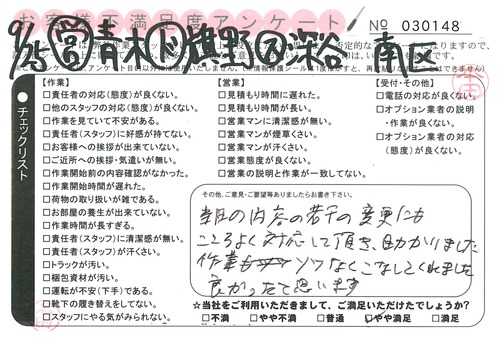 お客様不満足度アンケート
No 030148
9/25 営 青木 ド 旗野 ス 深谷 南区
チェックリスト
【作業】
□責任者の対応(態度)が良くない。
□他のスタッフの対応(態度)が良くない。
□作業を見ていて不安がある。
□責任者(スタッフ)に好感が持てない。
□お客様への挨拶が出来ていない。
□ご近所への挨拶・気遣いが無い。
□作業開始前の内容確認がなかった。
□作業開始時間が遅れた。
□荷物の取り扱いが雑である。
□お部屋の養生が出来ていない。
□作業時間が長すぎる。
□責任者(スタッフ)に清潔感が無い。
□責任者(スタッフ)が汗くさい。
□トラックが汚い。
□梱包資材が汚い。
□運転が不安(下手)である。
□靴下の履き替えをしてない。
□スタッフにやる気がみられない。
【営業】
□見積もり時間に遅れた。
□見積もり時間が長い。
□営業マンに清潔感が無い。
□営業マンが煙草くさい。
□営業マンが汗くさい。
□営業態度が良くない。
□営業の説明と作業が一致してない。
【受付・その他】
□電話の対応が良くない。
□オプション業者の説明・作業が良くない。
□オプション業者の対応(態度)が良くない。
その他、ご意見・ご要望等ありましたらお書き下さい。
当日の内容の若干の変更にも
こころよく対応して頂き、助かりました
作業もソツなくこなしてくれました
良かったと思います
☆当社をご利用いただきまして、ご満足いただけたでしょうか?
□不満 □やや不満 □普通 □やや満足 □満足